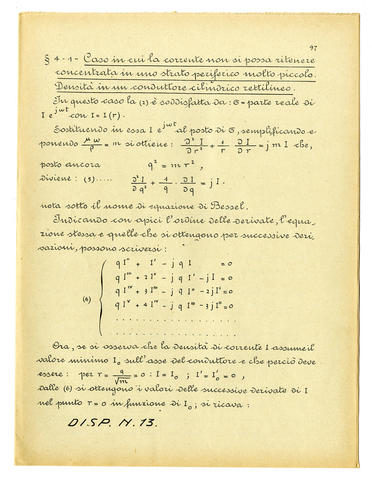 97
§ 4-1- Caso in cui la corrente non si possa ritenere
concentrata in uno strato periferico molto piccolo.
Densità in un conduttore cilindrico rettilineo.
In questo caso la (2) è soddisfatta da: σ = parte reale di
I e^jωt con I = I (r).
Sostituendo in essa I e^jωt al posto di σ, semplificando e
ponendo μω/ρ = m si ottiene: ∂²I/∂r² + 1/r · ∂I/∂r = j m I che,
posto ancora q² = m r²,
diviene: (5)..... ∂²I/∂q² + 1/q · ∂I/∂q = j I.
nota sotto il nome di equazione di Bessel.
Indicando con apici l'ordine delle derivate, l'equa-
zione stessa e quelle che si ottengono per successive deri-
vazioni, possono scriversi:
q I" + I' - j q I = 0
q I''' + 2 I" - j q I' - j I = 0
(6) q I'ᵛ + 3 I''' - j q I" - 2j I' = 0
q Iᵛ + 4 I'ᵛ - j q I''' - 3j I" = 0
Ora, se si osserva che la densità di corrente I assume il
valore minimo I₀ sull'asse del conduttore e che perciò deve
essere: per r = q/√m = 0 : I = I₀ ; I' = I'₀ = 0 ,
dalle (6) si ottengono i valori delle successive derivate di I
nel punto r = 0 in funzione di I₀; si ricava:
DISP. N. 13.